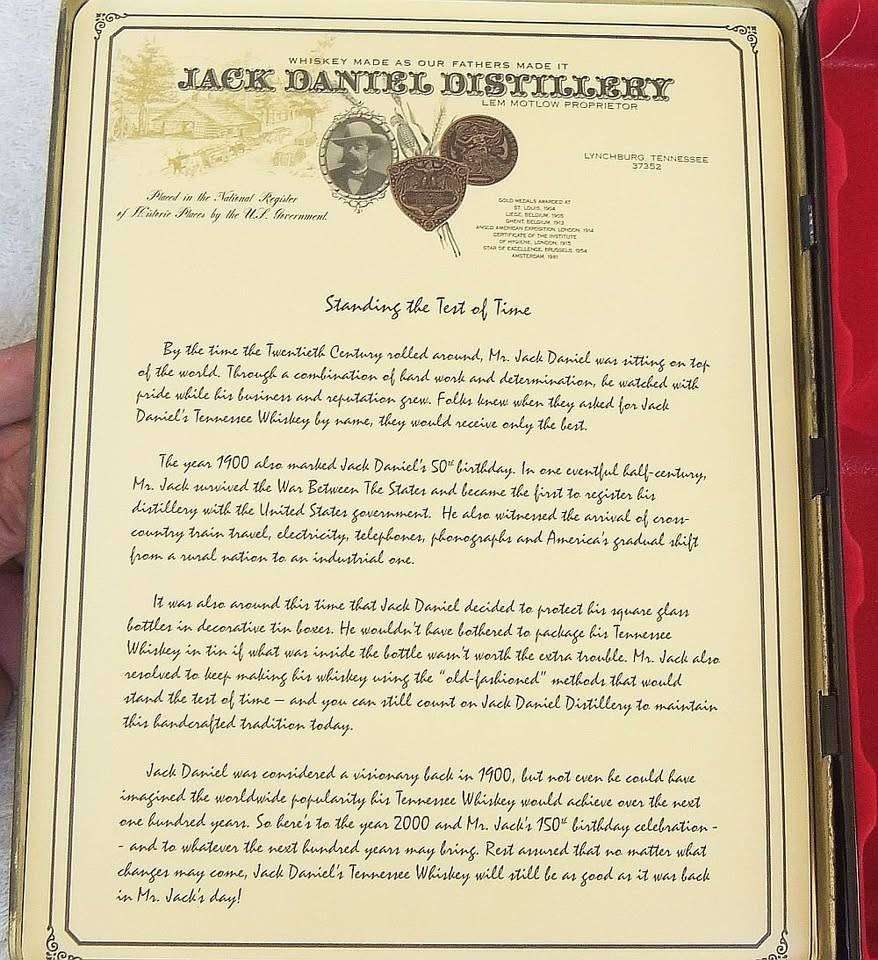 WHISKEY MADE AS OUR FATHERS MADE IT
JACK DANIEL DISTILLERY
LEM MOTLOW PROPRIETOR
LYNCHBURG, TENNESSEE
37352
Placed in the National Register
of Historic Places by the U.S. Government.
GOLD MEDALS AWARDED AT
ST. LOUIS, 1904
LIEGE, BELGIUM, 1905
GHENT, BELGIUM, 1913
ANGLO AMERICAN EXPOSITION, LONDON, 1914
CERTIFICATE OF THE INSTITUTE
OF HYGIENE, LONDON, 1915
STAR OF EXCELLENCE, BRUSSELS, 1954
AMSTERDAM, 1981
Standing the Test of Time
By the time the Twentieth Century rolled around, Mr. Jack Daniel was sitting on top
of the world. Through a combination of hard work and determination, he watched with
pride while his business and reputation grew. Folks knew when they asked for Jack
Daniel's Tennessee Whiskey by name, they would receive only the best.
The year 1900 also marked Jack Daniel's 50th birthday. In one eventful half-century,
Mr. Jack survived the War Between The States and became the first to register his
distillery with the United States government. He also witnessed the arrival of cross-
country train travel, electricity, telephones, phonographs and America's gradual shift
from a rural nation to an industrial one.
It was also around this time that Jack Daniel decided to protect his square glass
bottles in decorative tin boxes. He wouldn't have bothered to package his Tennessee
Whiskey in tin if what was inside the bottle wasn't worth the extra trouble. Mr. Jack also
resolved to keep making his whiskey using the "old-fashioned" methods that would
stand the test of time – and you can still count on Jack Daniel Distillery to maintain
this handcrafted tradition today.
Jack Daniel was considered a visionary back in 1900, but not even he could have
imagined the worldwide popularity his Tennessee Whiskey would achieve over the next
one hundred years. So here's to the year 2000 and Mr. Jack's 150th birthday celebration -
- and to whatever the next hundred years may bring. Rest assured that no matter what
changes may come, Jack Daniel's Tennessee Whiskey will still be as good as it was back
in Mr. Jack's day!